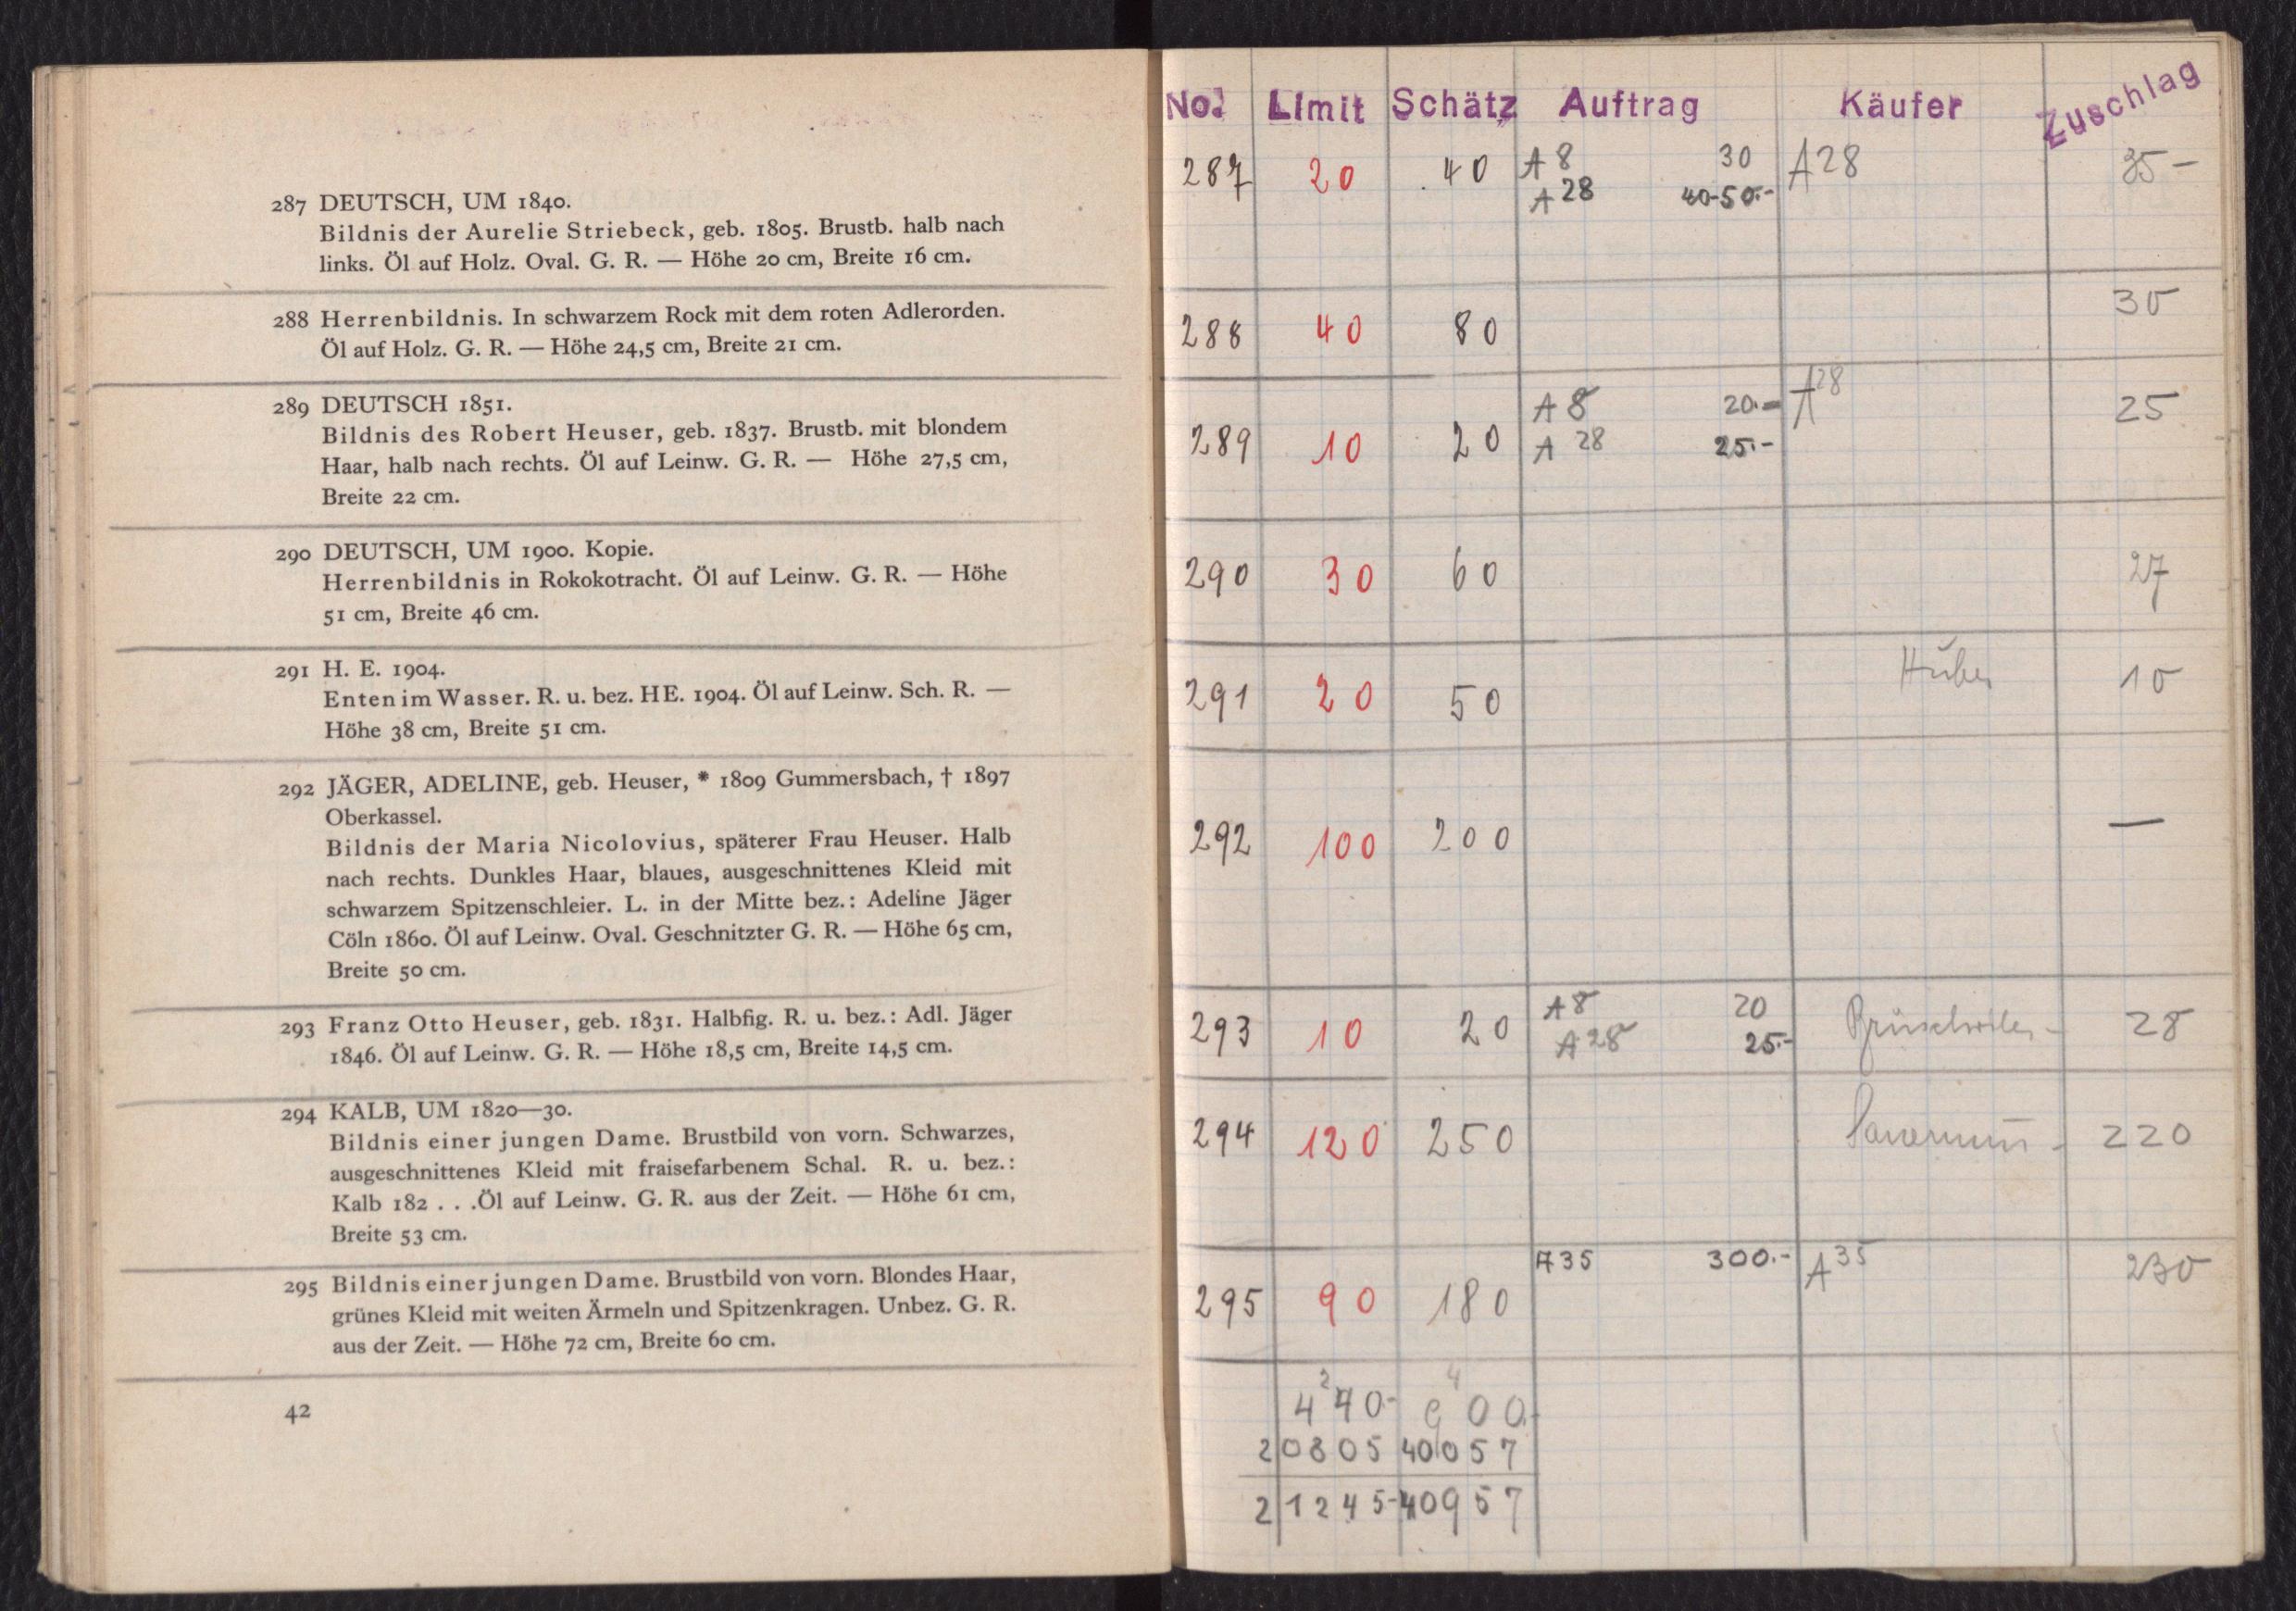 287 DEUTSCH, UM 1840.
Bildnis der Aurelie Striebeck, geb. 1805. Brustb. halb nach
links. Öl auf Holz. Oval. G. R. — Höhe 20 cm, Breite 16 cm.
288 Herrenbildnis. In schwarzem Rock mit dem roten Adlerorden.
Öl auf Holz. G. R. — Höhe 24,5 cm, Breite 21 cm.
289 DEUTSCH 1851.
Bildnis des Robert Heuser, geb. 1837. Brustb. mit blondem
Haar, halb nach rechts. Öl auf Leinw. G. R. — Höhe 27,5 cm,
Breite 22 cm.
290 DEUTSCH, UM 1900. Kopie.
Herrenbildnis in Rokokotracht. Öl auf Leinw. G. R. — Höhe
51 cm, Breite 46 cm.
291 H. E. 1904.
Enten im Wasser. R. u. bez. HE. 1904. Öl auf Leinw. Sch. R. —
Höhe 38 cm, Breite 51 cm.
292 JÄGER, ADELINE, geb. Heuser, * 1809 Gummersbach, † 1897
Oberkassel.
Bildnis der Maria Nicolovius, späterer Frau Heuser. Halb
nach rechts. Dunkles Haar, blaues, ausgeschnittenes Kleid mit
schwarzem Spitzenschleier. L. in der Mitte bez.: Adeline Jäger
Cöln 1860. Öl auf Leinw. Oval. Geschnitzter G. R. — Höhe 65 cm,
Breite 50 cm.
293 Franz Otto Heuser, geb. 1831. Halbfig. R. u. bez.: Adl. Jäger
1846. Öl auf Leinw. G. R. — Höhe 18,5 cm, Breite 14,5 cm.
294 KALB, UM 1820—30.
Bildnis einer jungen Dame. Brustbild von vorn. Schwarzes,
ausgeschnittenes Kleid mit fraisefarbenem Schal. R. u. bez.:
Kalb 182 . . .Öl auf Leinw. G. R. aus der Zeit. — Höhe 61 cm,
Breite 53 cm.
295 Bildnis einer jungen Dame. Brustbild von vorn. Blondes Haar,
grünes Kleid mit weiten Ärmeln und Spitzenkragen. Unbez. G. R.
aus der Zeit. — Höhe 72 cm, Breite 60 cm.
42
No. Limit Schätz Auftrag Käufer Zuschlag
287 20 40 A 8 30 A28 35 –
A 28 40-50.-
288 40 80 30
289 10 20 A 8 20.- A28 25
A 28 25.-
290 30 60 27
291 20 50 10
292 100 200 —
293 10 20 A 8 20 28
A 28 25.-
294 120 250 220
295 90 180 A35 300.- A35 230
440.- 900.
20805 40057
21245- 40957